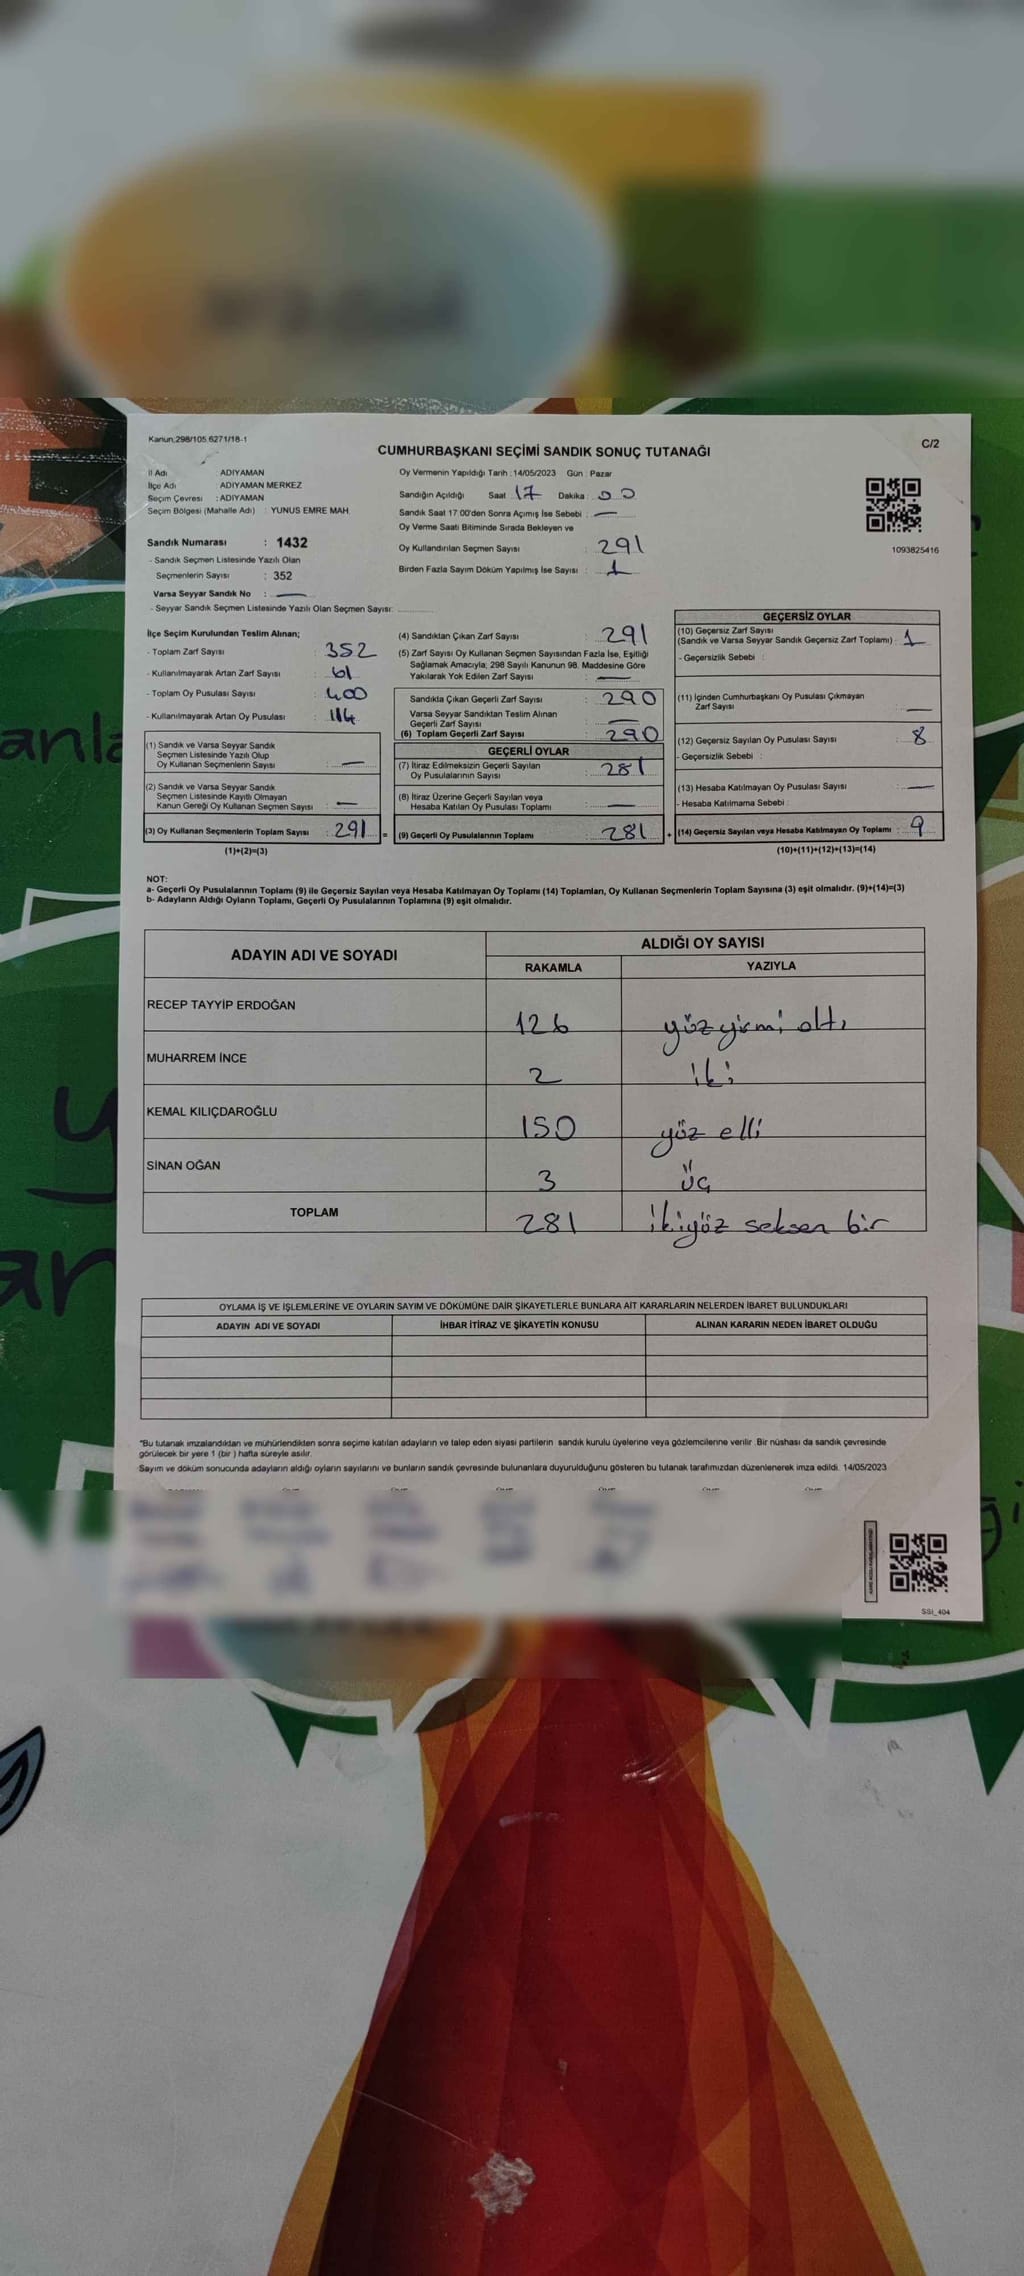 Kanun;298/105.6271/18-1
C/2
CUMHURBAŞKANI SEÇİMİ SANDIK SONUÇ TUTANAĞI
İl Adı ADIYAMAN
İlçe Adı ADIYAMAN MERKEZ
Seçim Çevresi : ADIYAMAN
Seçim Bölgesi (Mahalle Adı) : YUNUS EMRE MAH.
Sandık Numarası : 1432
- Sandık Seçmen Listesinde Yazılı Olan
Seçmenlerin Sayısı : 352
Varsa Seyyar Sandık No : —
- Seyyar Sandık Seçmen Listesinde Yazılı Olan Seçmen Sayısı:
Oy Vermenin Yapıldığı Tarih : 14/05/2023 Gün : Pazar
Sandığın Açıldığı Saat 17 Dakika : 00
Sandık Saat 17:00'den Sonra Açımış İse Sebebi : —
Oy Verme Saati Bitiminde Sırada Bekleyen ve
Oy Kullandırılan Seçmen Sayısı : 291
Birden Fazla Sayım Döküm Yapılmış İse Sayısı : 1
1093825416
İlçe Seçim Kurulundan Teslim Alınan;
- Toplam Zarf Sayısı : 352
- Kullanılmayarak Artan Zarf Sayısı : 61
- Toplam Oy Pusulası Sayısı : 400
- Kullanılmayarak Artan Oy Pusulası : 114
(1) Sandık ve Varsa Seyyar Sandık
Seçmen Listesinde Yazılı Olup
Oy Kullanan Seçmenlerin Sayısı : —
(2) Sandık ve Varsa Seyyar Sandık
Seçmen Listesinde Kayıtlı Olmayan
Kanun Gereği Oy Kullanan Seçmen Sayısı : —
(3) Oy Kullanan Seçmenlerin Toplam Sayısı : 291 =
(1)+(2)=(3)
(4) Sandıktan Çıkan Zarf Sayısı : 291
(5) Zarf Sayısı Oy Kullanan Seçmen Sayısından Fazla İse, Eşitliği
Sağlamak Amacıyla; 298 Sayılı Kanunun 98. Maddesine Göre
Yakılarak Yok Edilen Zarf Sayısı : —
Sandıkta Çıkan Geçerli Zarf Sayısı : 290
Varsa Seyyar Sandıktan Teslim Alınan
Geçerli Zarf Sayısı : —
(6) Toplam Geçerli Zarf Sayısı : 290
GEÇERLİ OYLAR
(7) İtiraz Edilmeksizin Geçerli Sayılan
Oy Pusulalarının Sayısı : 281
(8) İtiraz Üzerine Geçerli Sayılan veya
Hesaba Katılan Oy Pusulası Toplamı : —
(9) Geçerli Oy Pusulalarının Toplamı : 281 +
GEÇERSİZ OYLAR
(10) Geçersiz Zarf Sayısı
(Sandık ve Varsa Seyyar Sandık Geçersiz Zarf Toplamı) : 1
- Geçersizlik Sebebi :
(11) İçinden Cumhurbaşkanı Oy Pusulası Çıkmayan
Zarf Sayısı : —
(12) Geçersiz Sayılan Oy Pusulası Sayısı : 8
- Geçersizlik Sebebi :
(13) Hesaba Katılmayan Oy Pusulası Sayısı : —
- Hesaba Katılmama Sebebi :
(14) Geçersiz Sayılan veya Hesaba Katılmayan Oy Toplamı : 9
(10)+(11)+(12)+(13)=(14)
NOT:
a- Geçerli Oy Pusulalarının Toplamı (9) ile Geçersiz Sayılan veya Hesaba Katılmayan Oy Toplamı (14) Toplamları, Oy Kullanan Seçmenlerin Toplam Sayısına (3) eşit olmalıdır. (9)+(14)=(3)
b- Adayların Aldığı Oyların Toplamı, Geçerli Oy Pusulalarının Toplamına (9) eşit olmalıdır.
ADAYIN ADI VE SOYADI ALDIĞI OY SAYISI
RAKAMLA YAZIYLA
RECEP TAYYİP ERDOĞAN 126 yüzyirmi altı
MUHARREM İNCE 2 iki
KEMAL KILIÇDAROĞLU 150 yüz elli
SİNAN OĞAN 3 üç
TOPLAM 281 ikiyüz seksen bir
OYLAMA İŞ VE İŞLEMLERİNE VE OYLARIN SAYIM VE DÖKÜMÜNE DAİR ŞİKAYETLERLE BUNLARA AİT KARARLARIN NELERDEN İBARET BULUNDUKLARI
ADAYIN ADI VE SOYADI İHBAR İTİRAZ VE ŞİKAYETİN KONUSU ALINAN KARARIN NEDEN İBARET OLDUĞU
*Bu tutanak imzalandıktan ve mühürlendikten sonra seçime katılan adayların ve talep eden siyasi partilerin sandık kurulu üyelerine veya gözlemcilerine verilir. Bir nüshası da sandık çevresinde
görülecek bir yere 1 (bir ) hafta süreyle asılır.
Sayım ve döküm sonucunda adayların aldığı oyların sayılarını ve bunların sandık çevresinde bulunanlara duyurulduğunu gösteren bu tutanak tarafımızdan düzenlenerek imza edildi. 14/05/2023
SSI_404